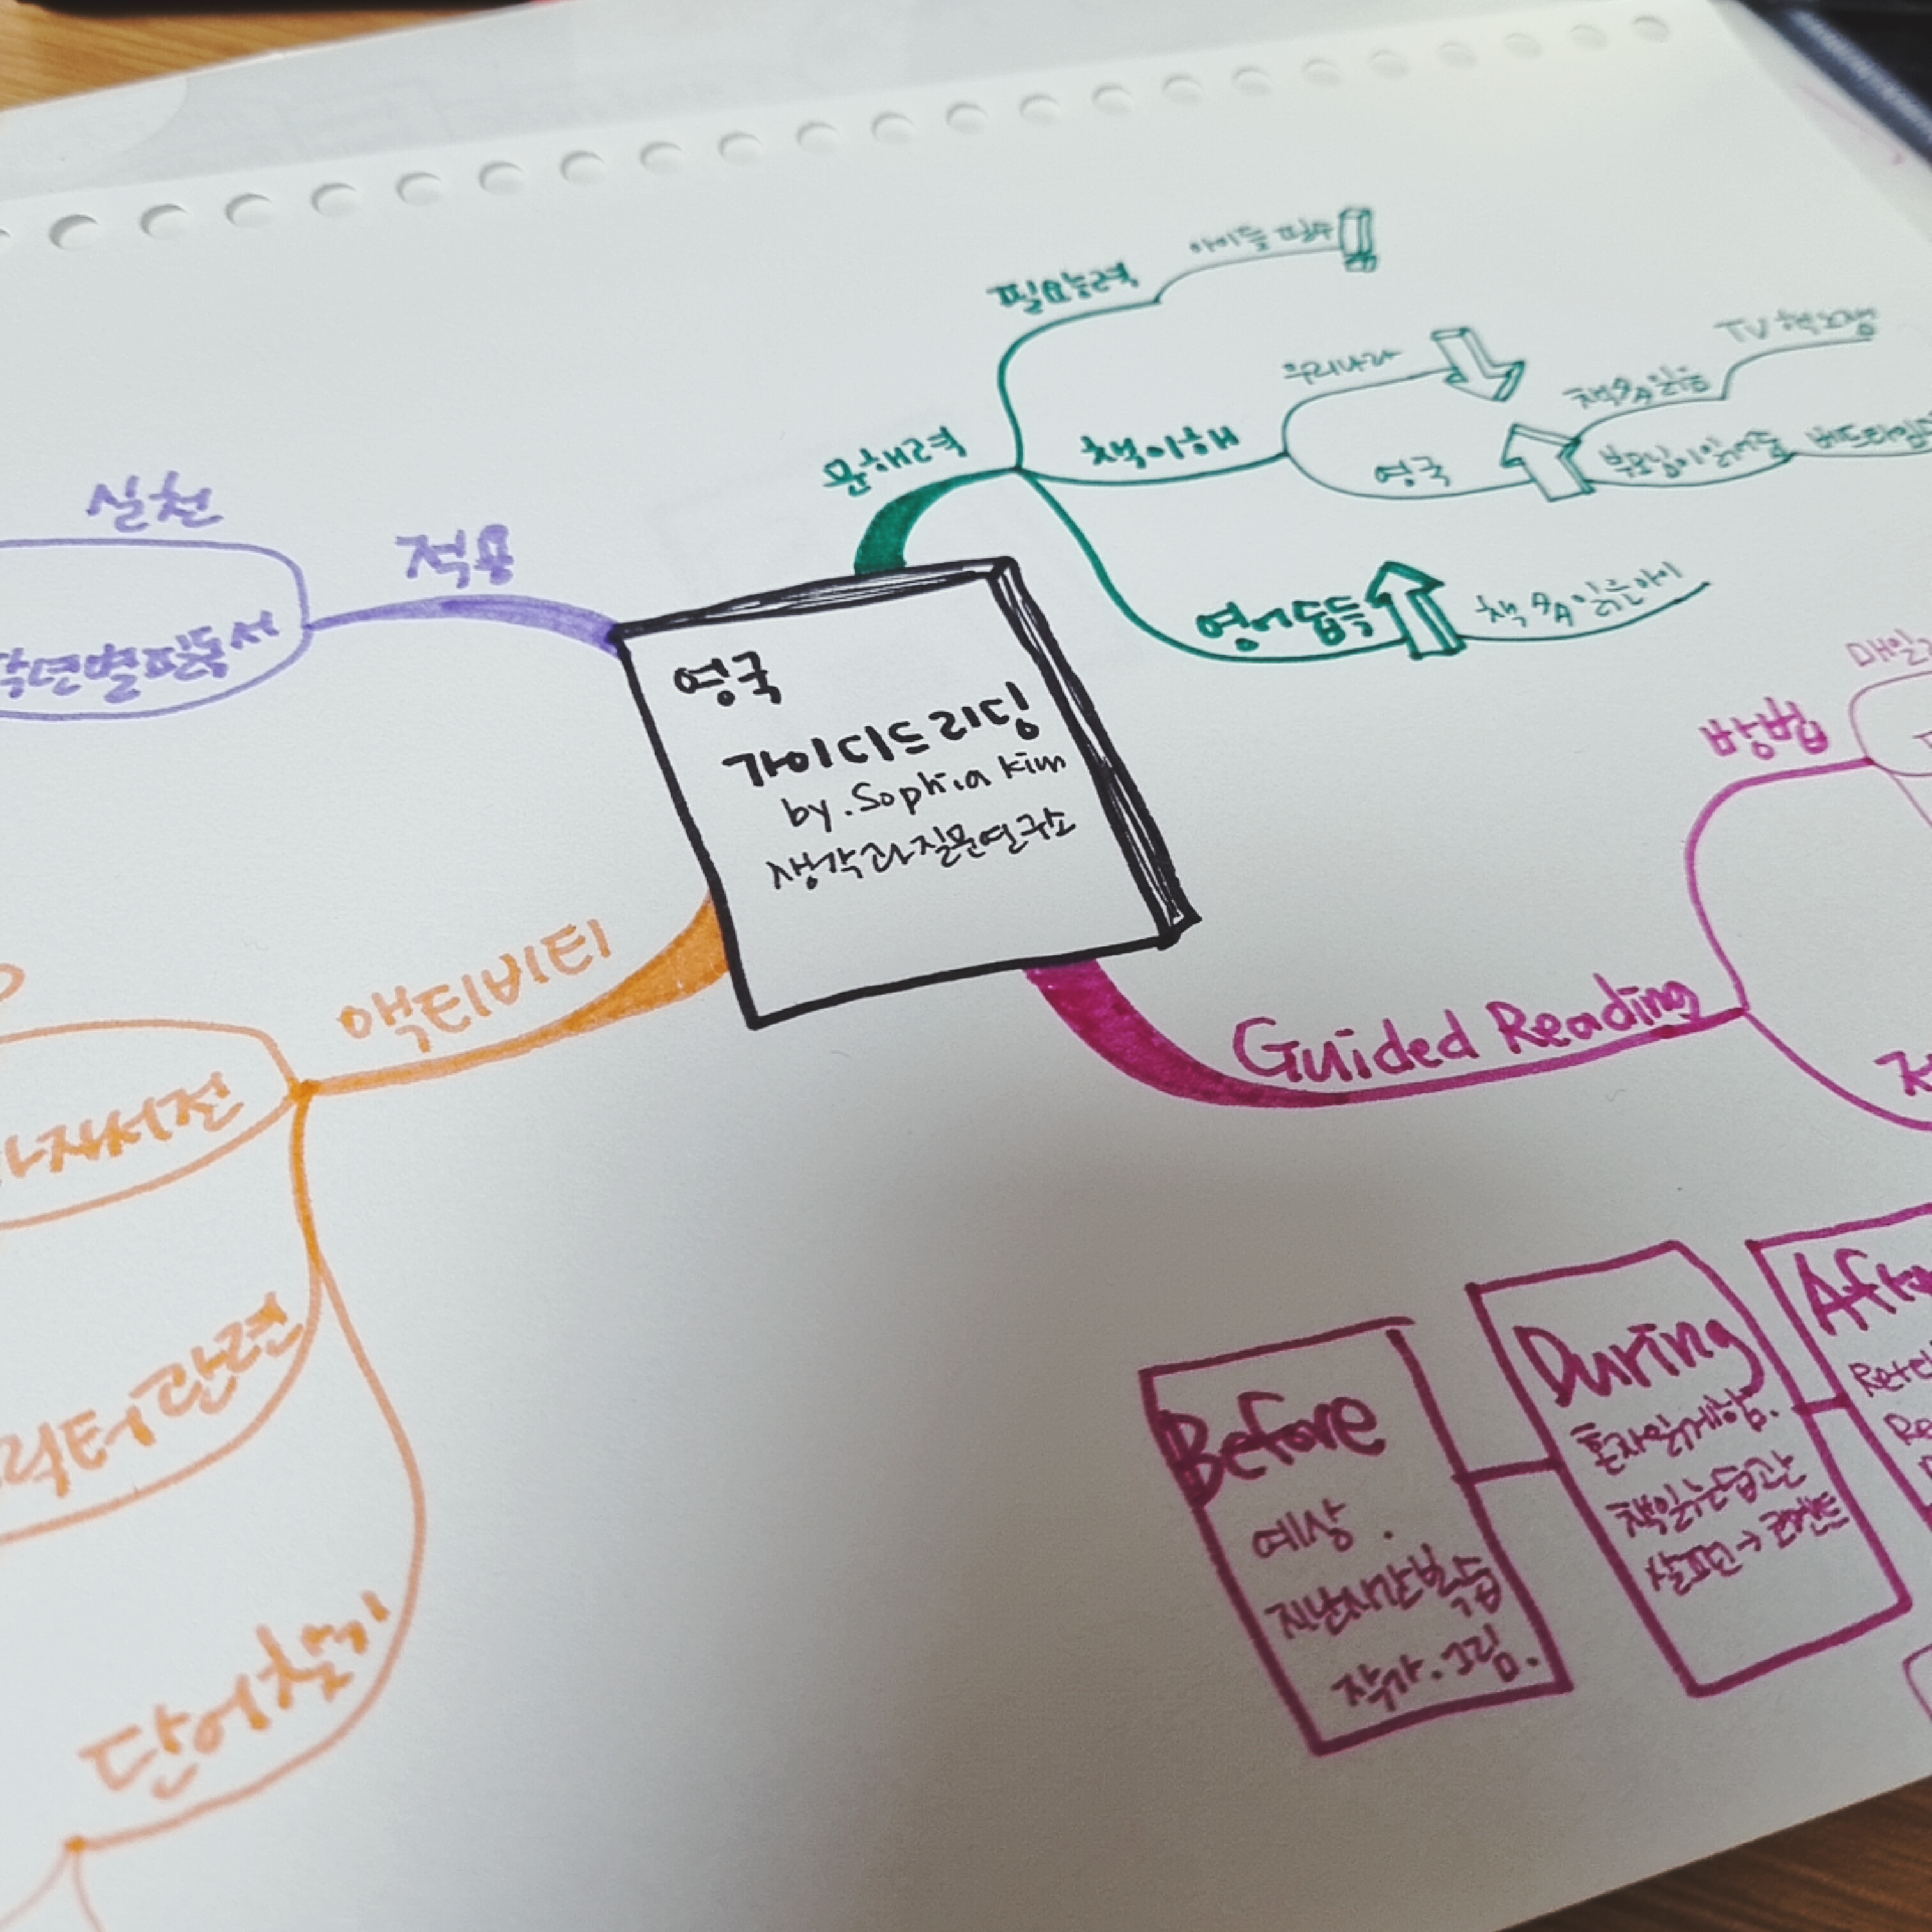 영국
가이디드 리딩
by. Sophia Kim
생각과질문연구소
문해력
필요능력
아이들 필수
책이해
우리나라
영국
책많이 읽음
TV 책 논쟁
부모님이 읽어줌
베드타임
영어습득
책 많이 읽은 아이
Guided Reading
방법
매일
Before
예상.
지난시간 복습
작가. 그림.
During
혼자읽게함.
책읽는습관
살피면 → 코멘트
적용
실천
학년별필독서
액티비티
자서전
릭터관련
단어찾기